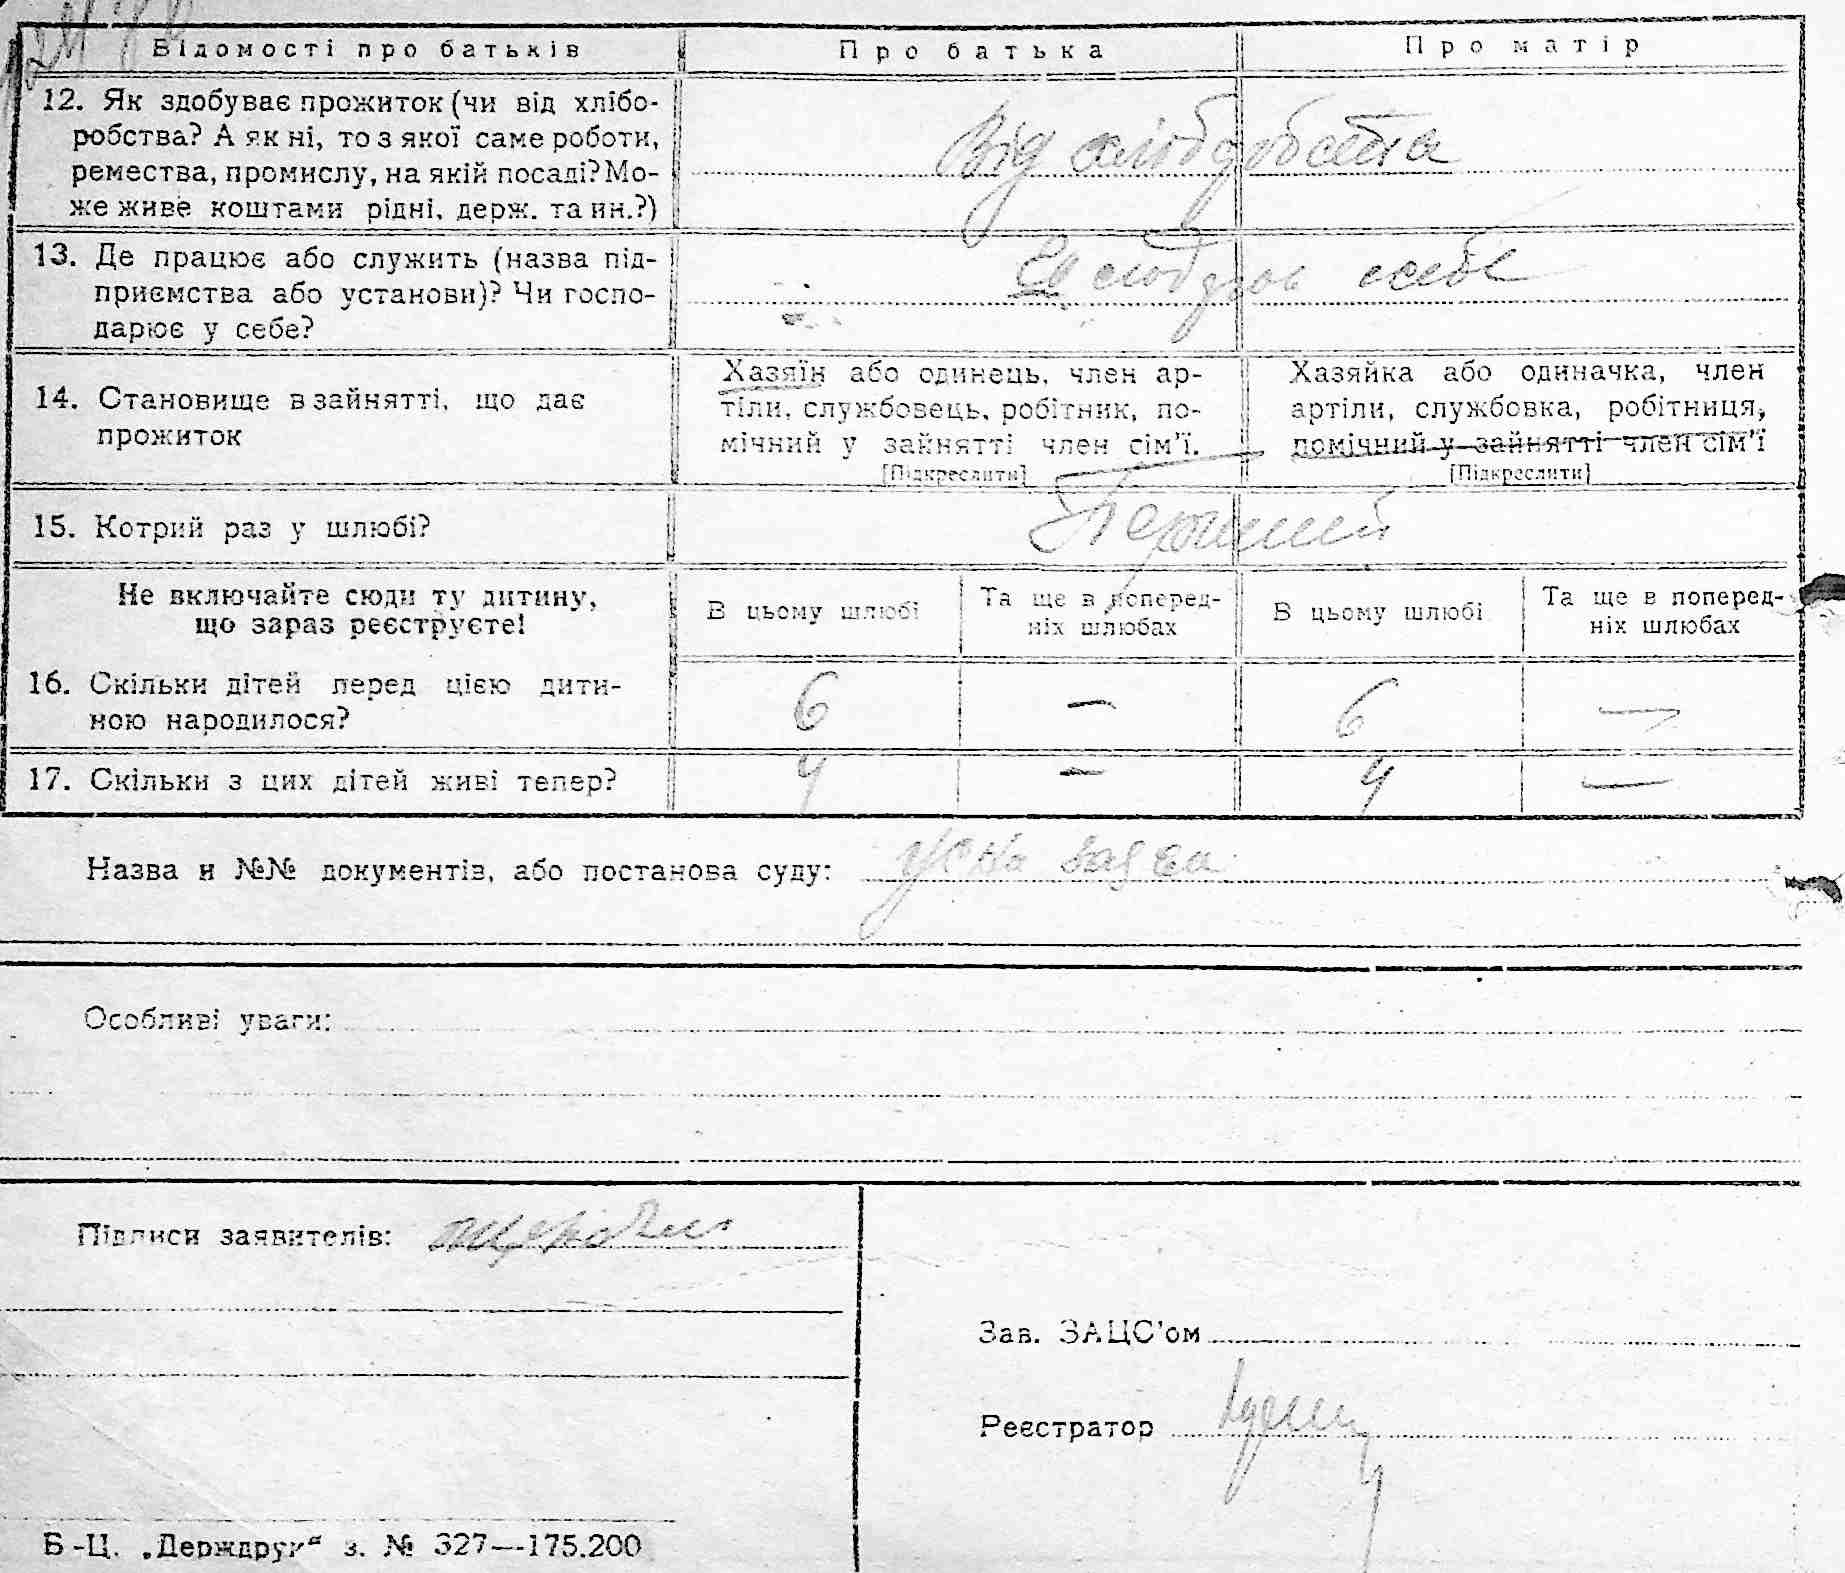 Відомості про батьків
Про батька
Про матір
12. Як здобуває прожиток (чи від хлібо-
робства? А як ні, то з якої саме роботи,
ремества, промислу, на якій посаді? Мо-
же живе коштами рідні, держ. та ин.?)
Від
13. Де працює або служить (назва під-
приємства або установи)? Чи госпо-
дарює у себе?
себе
14. Становище в зайнятті, що дає
прожиток
Хазяїн або одинець, член ар-
тіли, службовець, робітник, по-
мічний у зайнятті член сім'ї.
[Підкреслити]
Хазяйка або одиначка, член
артіли, службовка, робітниця,
помічний у зайнятті член сім'ї
[Підкреслити]
15. Котрий раз у шлюбі?
Перший
Не включайте сюди ту дитину,
що зараз реєструєте!
В цьому шлюбі
Та ще в поперед-
ніх шлюбах
В цьому шлюбі
Та ще в поперед-
ніх шлюбах
16. Скільки дітей перед цією дити-
ною народилося?
6 — 6 —
17. Скільки з цих дітей живі тепер?
4 — 4 —
Назва и №№ документів, або постанова суду:
Особливі уваги:
Підписи заявителів:
Зав. ЗАЦС'ом
Реєстратор
Б-Ц. „Держдрук“ з. № 327—175.200